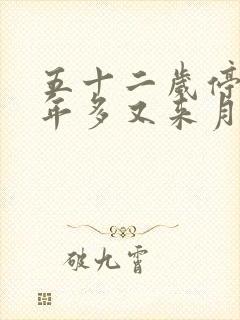 五十二岁停
年多又来月
破九霄